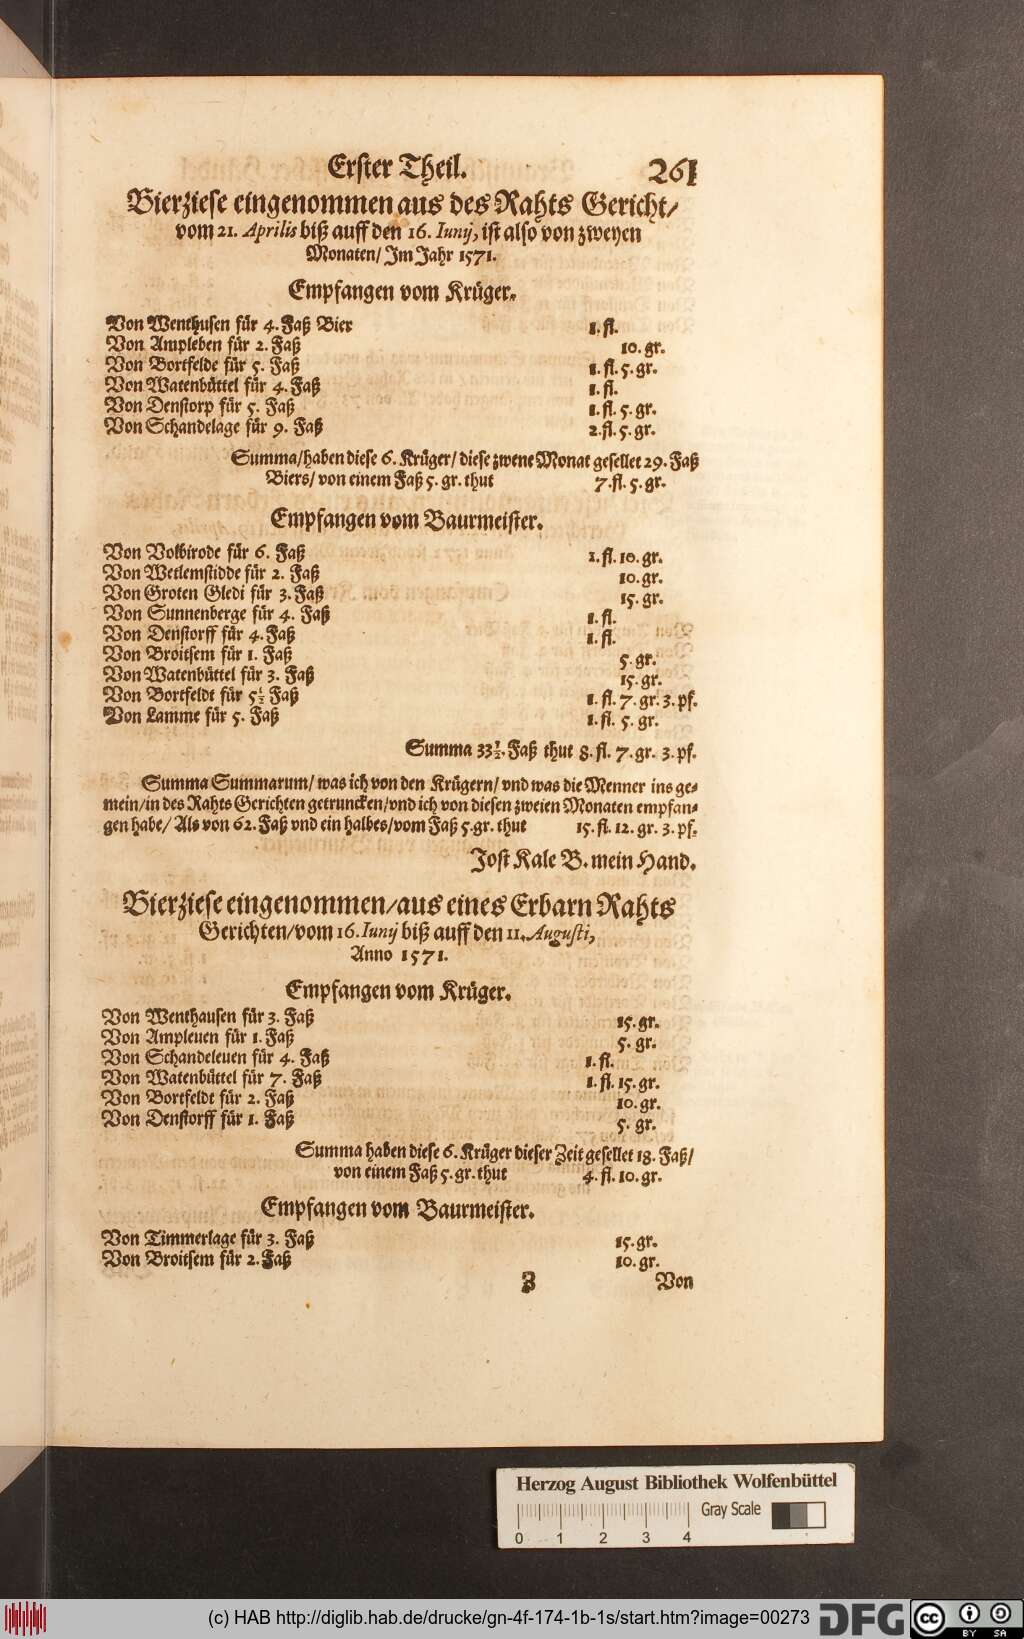 Erster Theil. 261
Bierziese eingenommen aus des Rahts Gericht/
vom 21. Aprilis biß auff den 16. Iunij, ist also von zweyen
Monaten/ Im Jahr 1571.
Empfangen vom Krüger.
Von Wenthusen für 4. Faß Bier 1. fl.
Von Ampleben für 2. Faß 10. gr.
Von Bortfelde für 5. Faß 1. fl. 5. gr.
Von Watenbüttel für 4. Faß 1. fl.
Von Denstorp für 5. Faß 1. fl. 5. gr.
Von Schandelage für 9. Faß 2. fl. 5. gr.
Summa/haben diese 6. Krüger/ diese zwene Monat gesellet 29. Faß
Biers/ von einem Faß 5. gr. thut 7. fl. 5. gr.
Empfangen vom Baurmeister.
Von Volbirode für 6. Faß 1. fl. 10. gr.
Von Wetlemstidde für 2. Faß 10. gr.
Von Groten Gledi für 3. Faß 15. gr.
Von Sunnenberge für 4. Faß 1. fl.
Von Denstorff für 4. Faß 1. fl.
Von Broitsem für 1. Faß 5. gr.
Von Watenbüttel für 3. Faß 15. gr.
Von Bortfeldt für 5½ Faß 1. fl. 7. gr. 3. pf.
Von Lamme für 5. Faß 1. fl. 5. gr.
Summa 33½. Faß thut 8. fl. 7. gr. 3. pf.
Summa Summarum/ was ich von den Krügern/ vnd was die Menner ins ge-
mein/in des Rahts Gerichten getruncken/vnd ich von diesen zweien Monaten empfan-
gen habe/ Als von 62. Faß vnd ein halbes/vom Faß 5.gr. thut 15. fl. 12. gr. 3. pf.
Jost Kale B. mein Hand.
Bierziese eingenommen/aus eines Erbarn Rahts
Gerichten/vom 16. Iunij biß auff den 11. Augusti,
Anno 1571.
Empfangen vom Krüger.
Von Wenthausen für 3. Faß 15. gr.
Von Ampleuen für 1. Faß 5. gr.
Von Schandeleuen für 4. Faß 1. fl.
Von Watenbüttel für 7. Faß 1. fl. 15. gr.
Von Bortfeldt für 2. Faß 10. gr.
Von Denstorff für 1. Faß 5. gr.
Summa haben diese 6. Krüger dieser Zeit gesellet 18. Faß/
von einem Faß 5. gr. thut 4. fl. 10. gr.
Empfangen vom Baurmeister.
Von Timmerlage für 3. Faß 15. gr.
Von Broitsem für 2. Faß 10. gr.
3 Von
Herzog August Bibliothek Wolfenbüttel
Gray Scale
0 1 2 3 4
(c) HAB http://diglib.hab.de/drucke/gn-4f-174-1b-1s/start.htm?image=00273 DFG cc BY SA